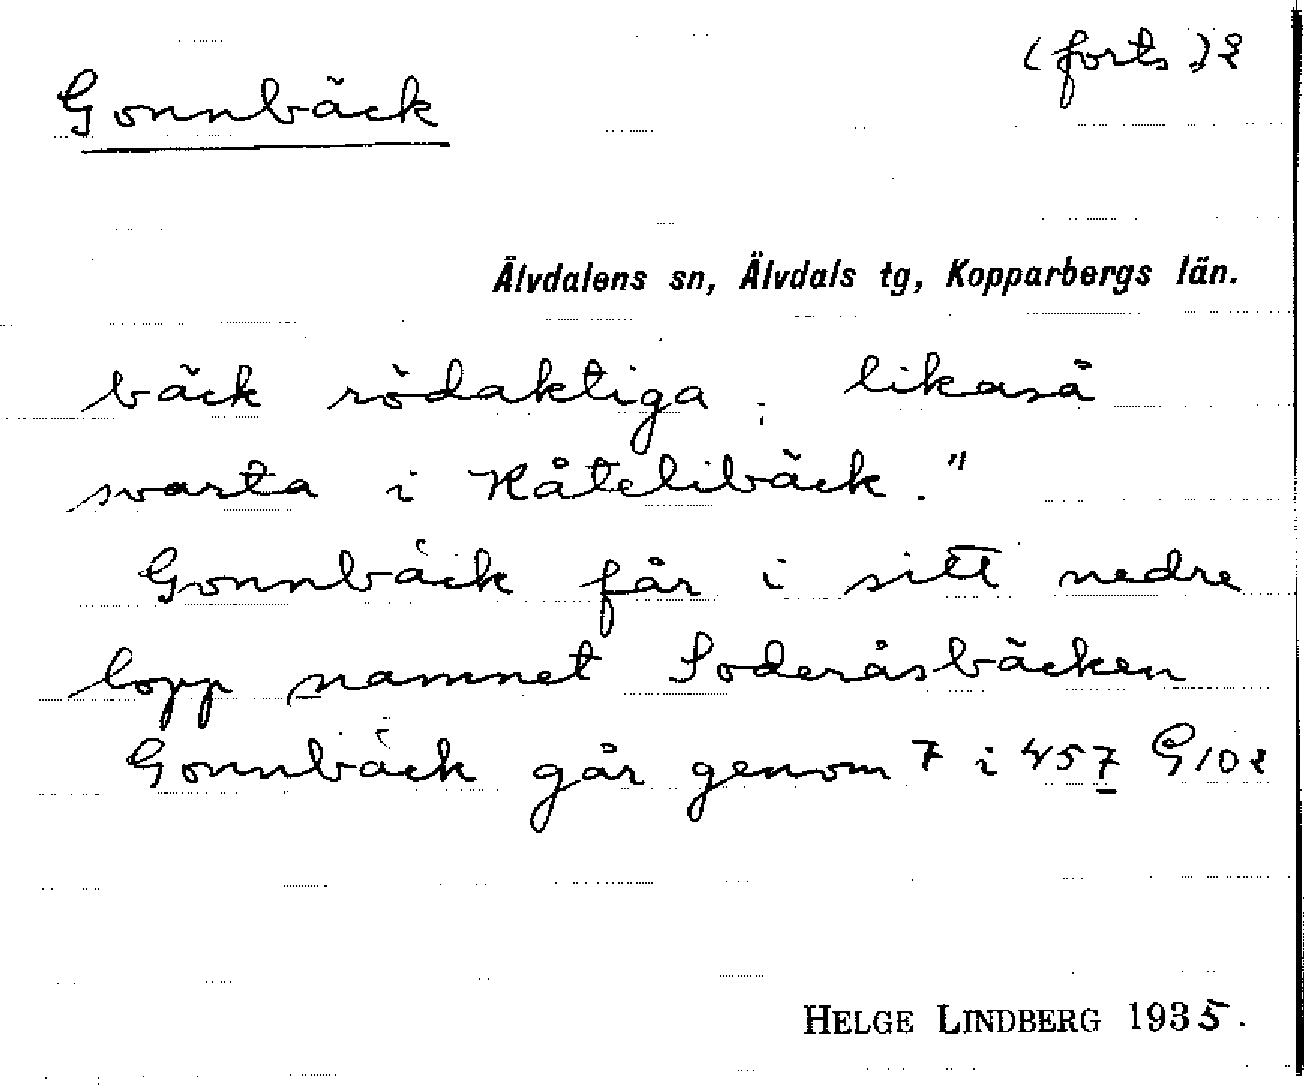 (forts) 2
Gonnbäck
Älvdalens sn, Älvdals tg, Kopparbergs län.
bäck rödaktiga; likaså
svarta i Kåtelibäck."
Gonnbäck får i sitt nedre
lopp namnet Soderåsbäcken
Gonnbäck går genom 7 i 457 G102
HELGE LINDBERG 1935.